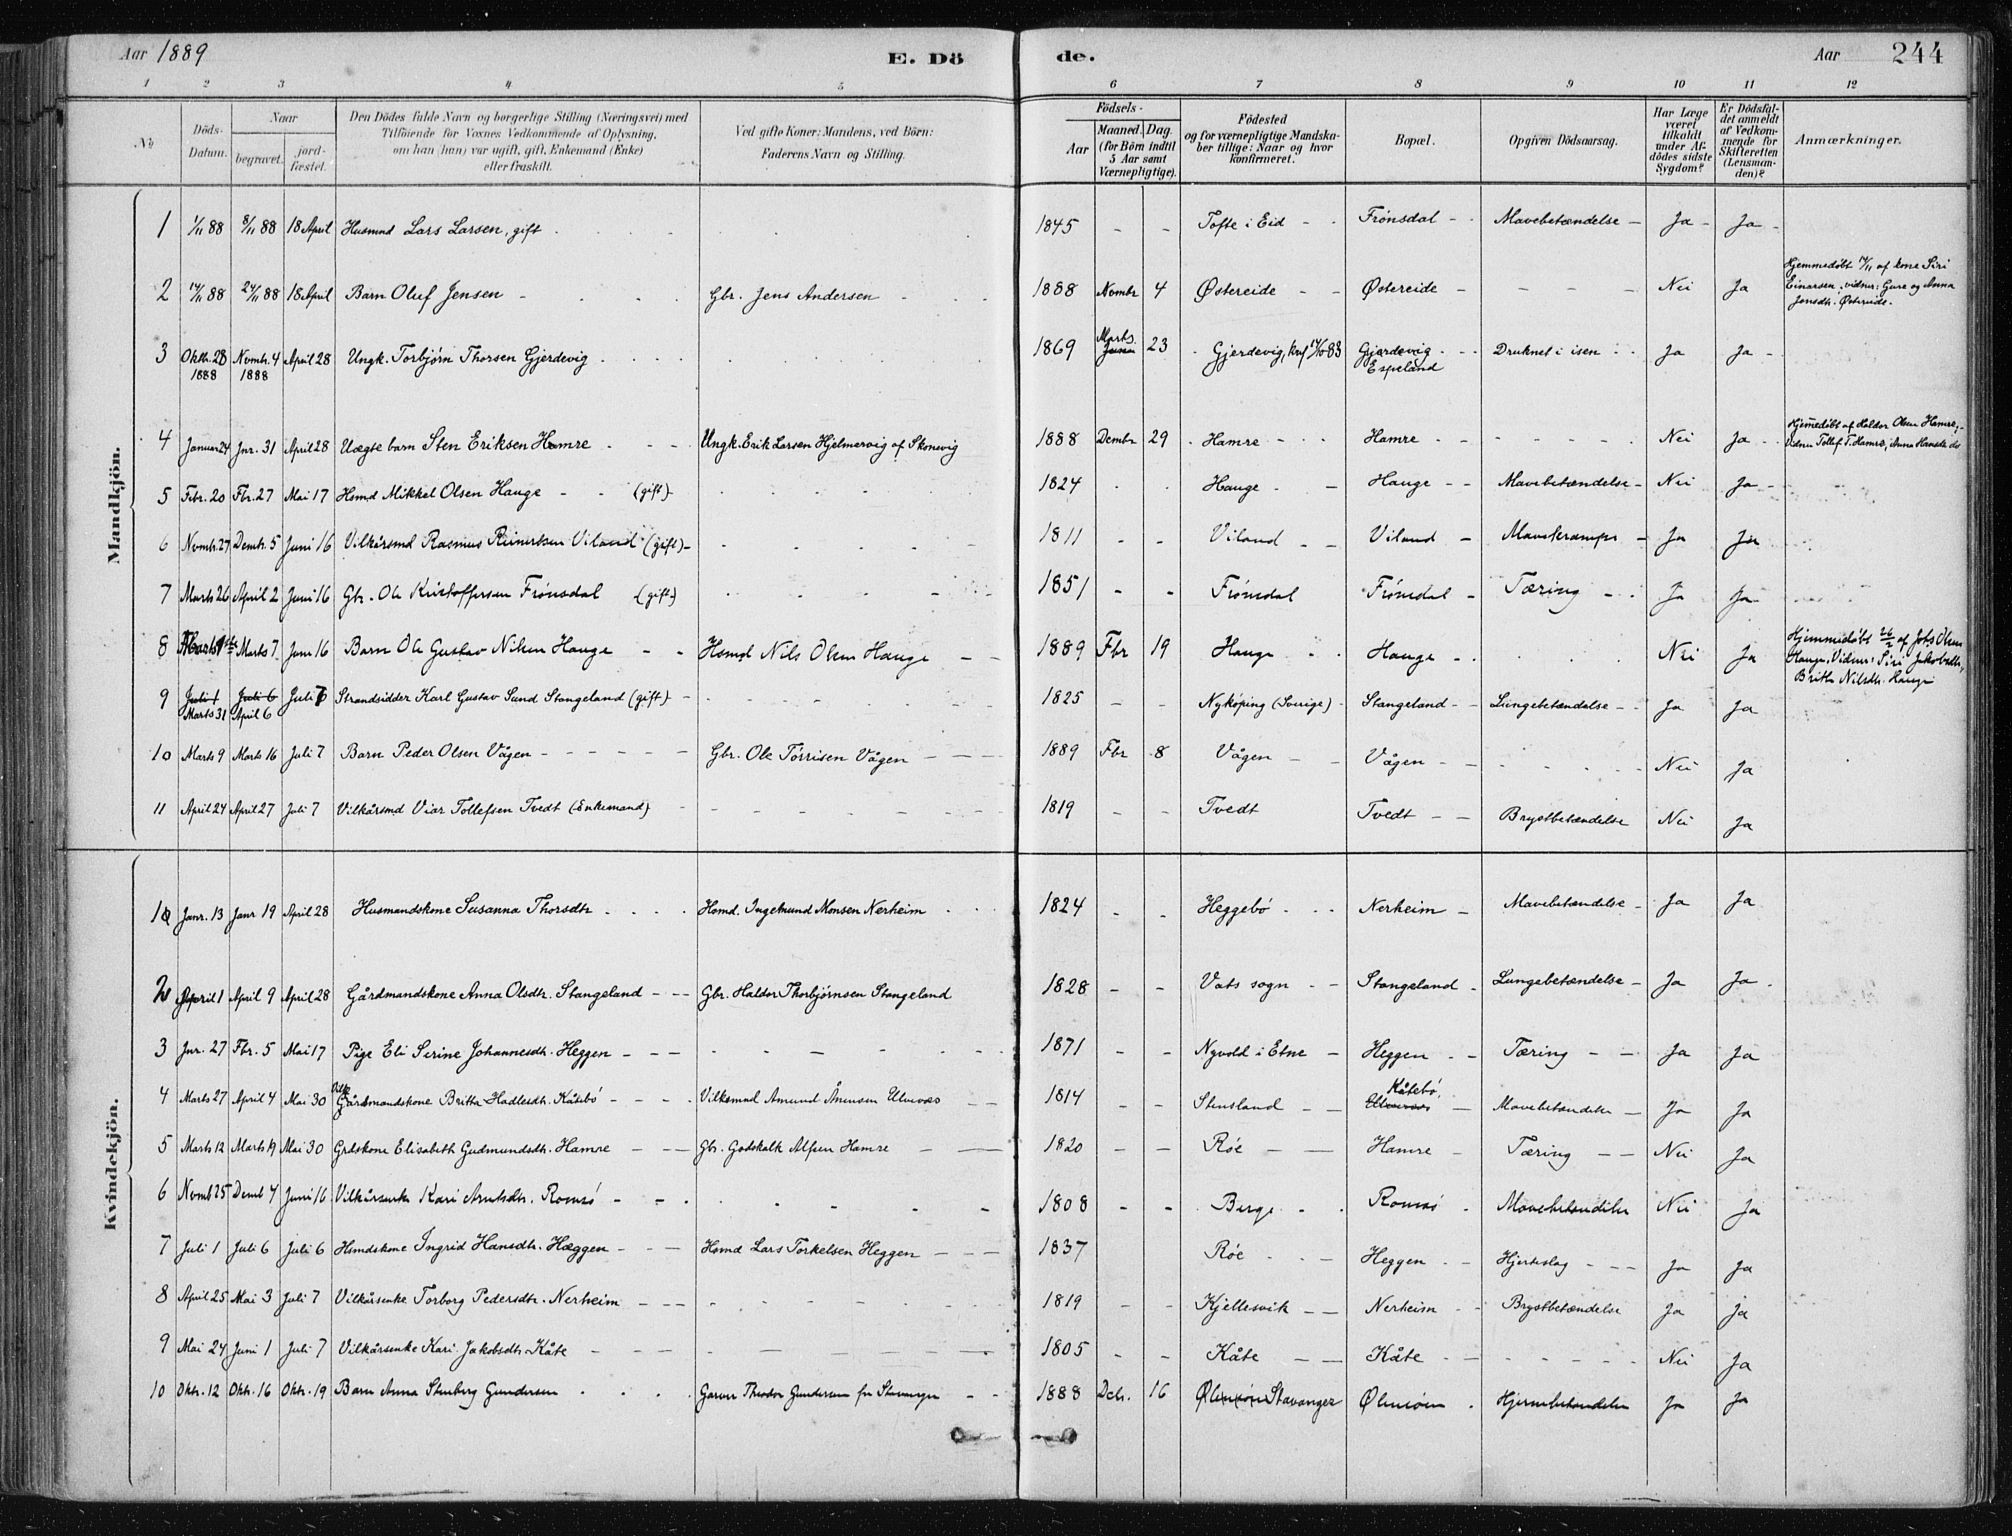 Aar 1889 E. Dö
de. Aar 244
1 2 3 4 5 6 7 8 9 10 11 12
No
Döds-Datum.
Naar
begravet.
jordfæstet.
Den Dödes fulde Navn og borgerlige Stilling (Næringsvei) med
Tilföiende for Voxnes Vedkommende af Oplysning,
om han (hun) var ugift, gift, Enkemand (Enke)
eller fraskilt.
Ved gifte Koner: Mandens, ved Börn:
Faderens Navn og Stilling.
Födsels-
Aar
Maaned. Dag.
(for Börn indtil
5 Aar samt
Værnepligtige).
Födested
og for værnepligtige Mandska-
ber tillige: Naar og hvor
konfirmeret.
Bopæl.
Opgiven Dödsaarsag.
Har Læge
været
tilkaldt
under Af-
dödes sidste
Sygdom?
Er Dödsfal-
det anmeldt
af Vedkom-
mende for
Skifteretten
(Lensman-
den)?
Anmærkninger.
Mandkjön.
1 1/11 88 8/11 88 18 April Husmnd Lars Larsen, gift 1845 - - Tofte i Eid Frönsdal Mavebetændelse Ja Ja
2 14/11 88 24/11 88 18 April Barn Oluf Jensen Gbr. Jens Andersen 1888 Novmbr 4 Østereide Østereide Nei Ja Hjemmedøbt 14/11 af kone Siri
Einarsen; vidner: Gure og Anna
Jonsdtr. Østereide.
3 Oktb. 28 1888 Novmb. 4 1888 April 28 Ungk. Torbjørn Thorsen Gjerdevig 1869 Marts 23 Gjerdevig, knf 83 Gjærdevig Espeland Druknet i isen Ja Ja
4 Januar 24 Jnr. 31 April 28 Uægte barn Sten Eriksen Hamre Ungk. Erik Larsen Hjelmervig af Skonevig 1888 Dembr 29 Hamre Hamre Nei Ja Hjemmedøbt af Haldor Olsen Hamre;
Vidner Tollef T. Hamre, Anna
5 Febr. 20 Fbr. 27 Mai 17 Hsmd Mikkel Olsen Hauge (gift) 1824 Hauge Hauge Mavebetændelse Nei Ja
6 Novmb. 27 Demb. 5 Juni 16 Vilkårsmd Rasmus Reinertsen Viland (gift) 1811 - - Viland Viland Mavekrampe Ja Ja
7 Marts 26 April 2 Juni 16 Gbr. Ole Kristoffersen Frönsdal (gift) 1851 - - Frönsdal Frönsdal Tæring Ja Ja
8 Marts 1ste Marts 7 Juni 16 Barn Ole Gustav Nilsen Hauge Hsmd Nils Olsen Hauge 1889 Fbr 19 Hauge Hauge Nei Ja Hjemmedøbt 26/2 af Jobs Olsen
Hauge. Vidner: Siri Jakobsdtr,
Britha Nilsdtr. Hauge
9 Juli 1 Juli 6 Juli 7 Strandsidder Karl Gustav Sund Stangeland (gift) 1825 - - Nykøping (Sverige) Stangeland Lungebetændelse Ja Ja
Marts 31 April 6
10 Marts 9 Marts 16 Juli 7 Barn Peder Olsen Vågen Gbr. Ole Törrisen Vågen 1889 Fbr 8 Vågen Vågen Nei Ja
11 April 24 April 27 Juli 7 Vilkårsmd Viar Tollefsen Tvedt (Enkemand) 1819 - - Tvedt Tvedt Brystbetændelse Nei Ja
Kvindekjön.
1 Janr. 13 Janr 19 April 28 Husmandskone Susanna Thorsdtr Hsmd. Ingelmund Monsen Nerheim 1824 - - Heggebö Nerheim Mavebetændelse Ja Ja
2 April 1 April 9 April 28 Gårdmandskone Anna Olsdtr. Stangeland Gbr. Haldor Thorbjørnsen Stangeland 1828 - - Vats sogn Stangeland Lungebetændelse Ja Ja
3 Jnr. 27 Fbr. 5 Mai 17 Pige Eli Serine Johannesdtr. Heggen 1871 - - Nyvold i Etne Heggen Tæring Ja Ja
4 Marts 27 April 4 Mai 30 Vilk Gårdmandskone Britta Hadlesdtr. Kåtebö Vilksmnd Amund Ulvevas 1814 - - Stensland Kåtebö Mavebetændelse Ja Ja
5 Marts 12 Marts 19 Mai 30 Grdskone Elisabeth Gudmundsdtr. Hamre Gbr. Godskalk Alfsen Hamre 1820 - - Röe Hamre Tæring Nei Ja
6 Novmb 25 Demb 4 Juni 16 Vilkårsenke Kari Romsö 1808 - - Berge Romsö Mavebetændelse Nei Ja
7 Juli 1 Juli 6 Juli 6 Hsmdskone Ingrid Hansdtr. Hæggen Hsmd Lars Torkelsen Heggen 1837 Röe Heggen Hjerteslag Ja Ja
8 April 25 Mai 3 Juli 7 Vilkårsenke Torborg Pedersdtr. Nerheim 1819 - - Kjellesvik Nerheim Brystbetændelse Ja Ja
9 Mai 24 Juni 1 Juli 7 Vilkårsenke Kari Jakobsdtr Kåte 1805 - - Kåte Kåte Nei Ja
10 Oktr. 12 Oktr. 16 Oktr. 19 Barn Anna Stenberg Gundersen Garver Theodor Gundersen fra Stavanger 1888 Dcb. 16 Stavanger Ølensøen Hjernebetændelse Ja Ja